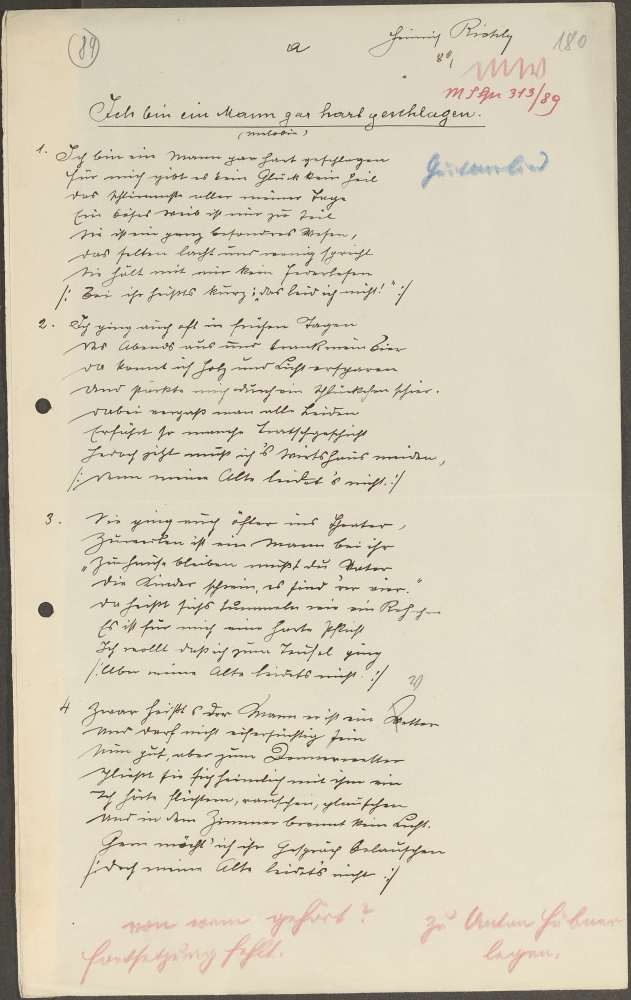 84
a
Heinrich Richly
180
80/1
MW
MSGr 313/89
Ich bin ein Mann gar hart geschlagen.
(Melodie)
Gassenlied
1. Ich bin ein Mann gar hart geschlagen
Für mich gibt es kein Glück kein Heil
Das Schlimmste aller meiner Tage
Ein böses Weib ist mir zu Teil
Sie ist ein ganz besondres Wesen,
Das selten lacht und wenig spricht
Sie hält mit mir kein Federlesen
/: Bei ihr heißts kurz: „das leid ich nicht!" :/
2. Ich ging auch oft in frühen Tagen
Des Abends aus und trank mein Bier
Da konnt ich Holz und Licht ersparen
Und stärkte mich durch ein Schlückchen schier.
Dabei vergaß man alle Leiden
Erfuhr so manche Tratschgeschicht
Jedoch jetzt muß ich's Wirtshaus meiden,
/: Denn meine Alte leidet's nicht. :/
3. Sie ging auch öfter ins Theater,
Zuweilen ist ein Mann bei ihr
„Zu Hause bleiben mußt du Vater
Die Kinder schrein, es sind rer vier."
Da heißt sichs tummeln wie ein
Es ist für mich eine harte Pflicht
Ich wollt daß ich zum Teufel ging
/: Aber meine Alte leidets nicht. :/
4 Zwar heißt's der Mann er ist ein Vetter
Und darf nicht eifersüchtig sein
Nun gut, aber zum Donnerwetter
Schließt sie sich heimlich mit ihm ein
Ich hörte flüstern, rauschen, plauschen
Und in dem Zimmer brennt kein Licht.
Gern möcht' ich ihr Gespräch belauschen
/: Doch meine Alte leidet's nicht :/
von wem gehört?
Fortsetzung fehlt.
zu Anton Hübner
legen.